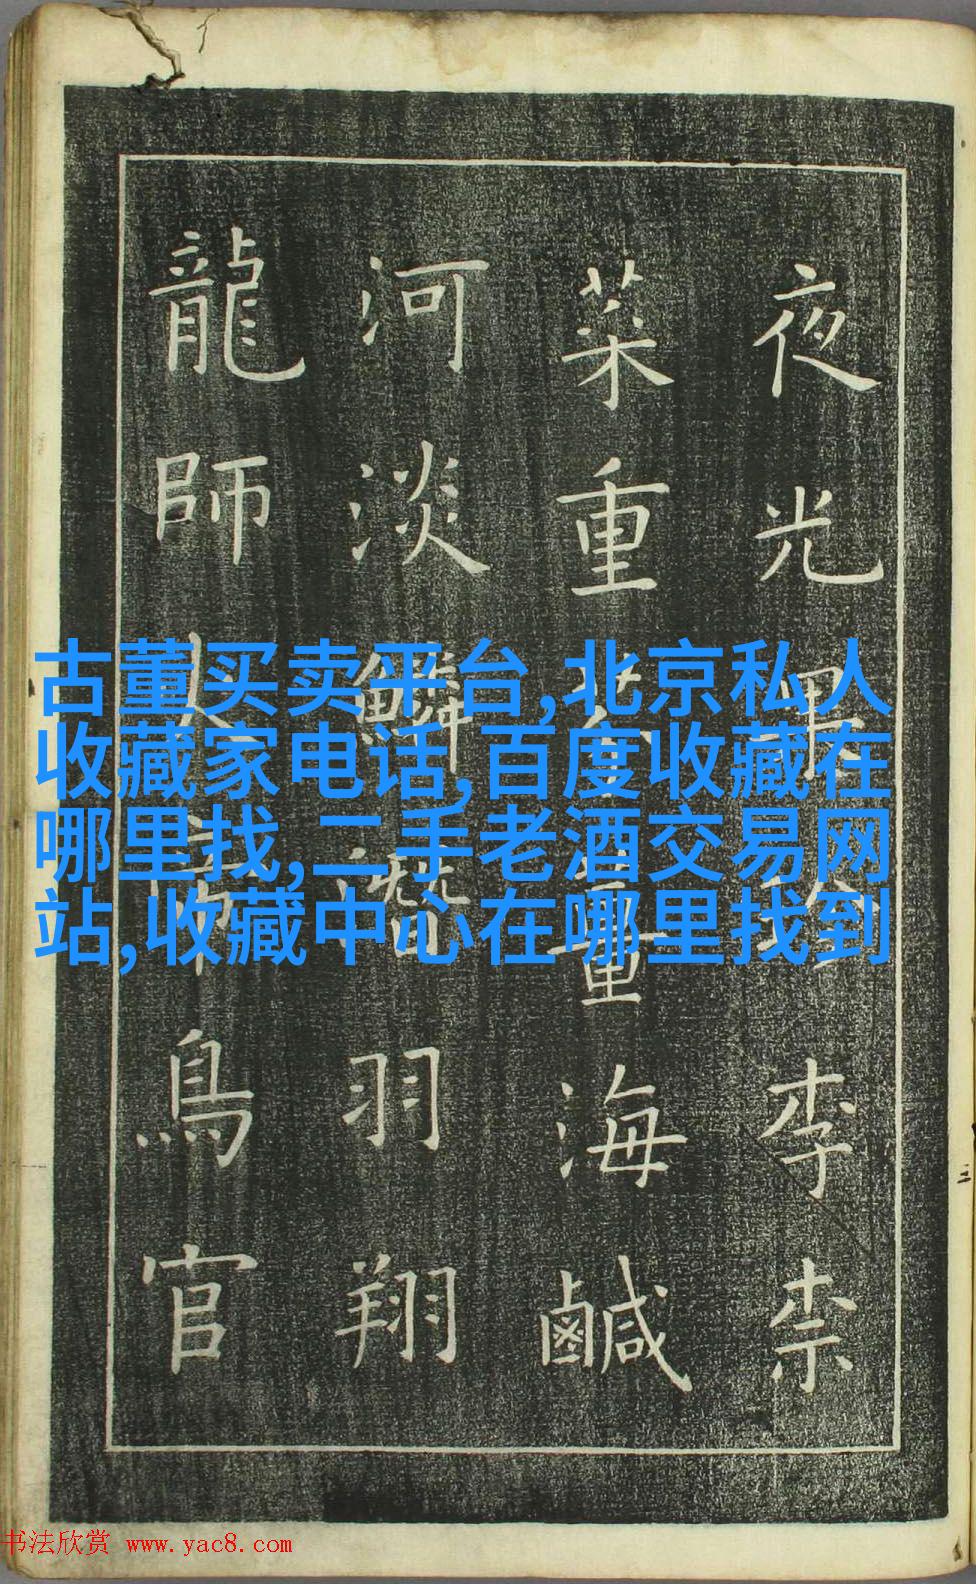 夜光果珍李柰
菜重芥薑海鹹
河淡鱗潛羽翔
龍師火帝鳥官
古董买卖平台,北京私人
收藏家电话,百度收藏在
哪里找,二手老酒交易网
站,收藏中心在哪里找到
书法欣赏 www.yac8.com